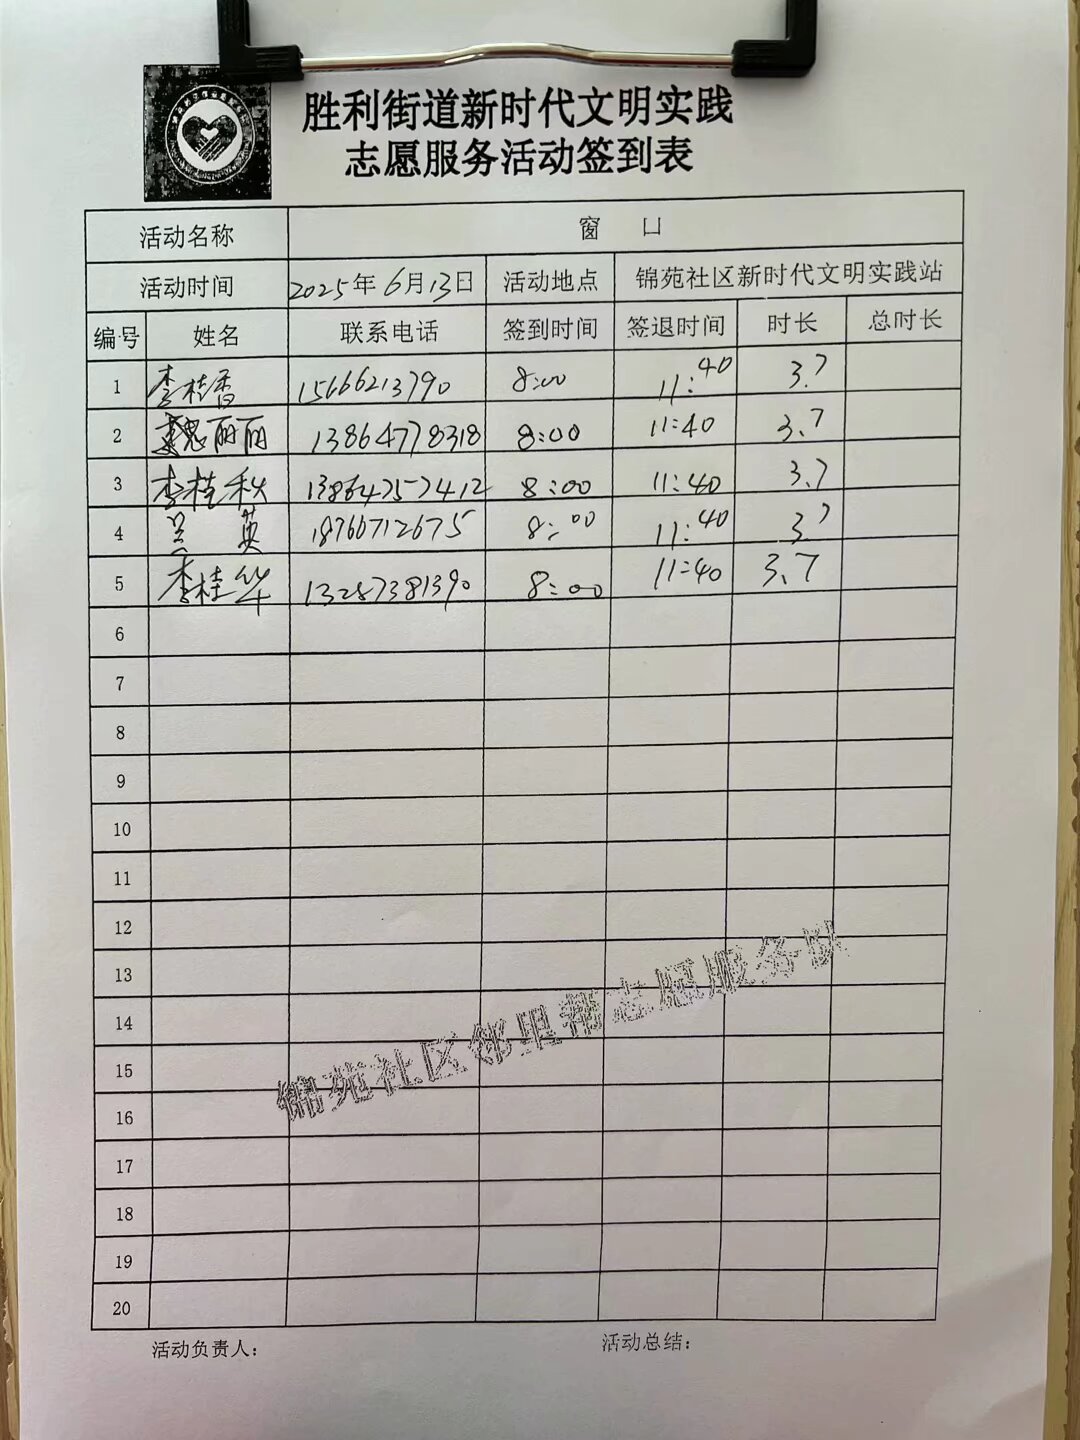 胜利街道新时代文明实践
志愿服务活动签到表
活动名称 窗 口
活动时间 2025年6月13日 活动地点 锦苑社区新时代文明实践站
编号 姓名 联系电话 签到时间 签退时间 时长 总时长
1 李桂香 15666213790 8:00 11:40 3.7
2 魏丽丽 13864778318 8:00 11:40 3.7
3 李桂秋 13864757412 8:00 11:40 3.7
4 兰英 18766712675 8:00 11:40 3.7
5 李桂华 13287381390 8:00 11:40 3.7
6
7
8
9
10
11
12
13
14
15
16
17
18
19
20
锦苑社区邻里帮志愿服务队
活动负责人: 活动总结: